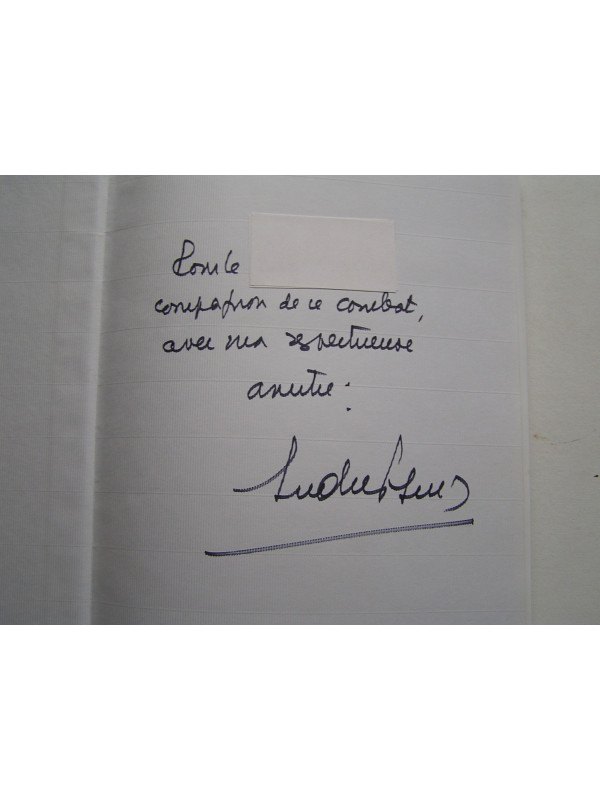 Pour le
compagnon de ce combat,
avec ma respectueuse
amitié :